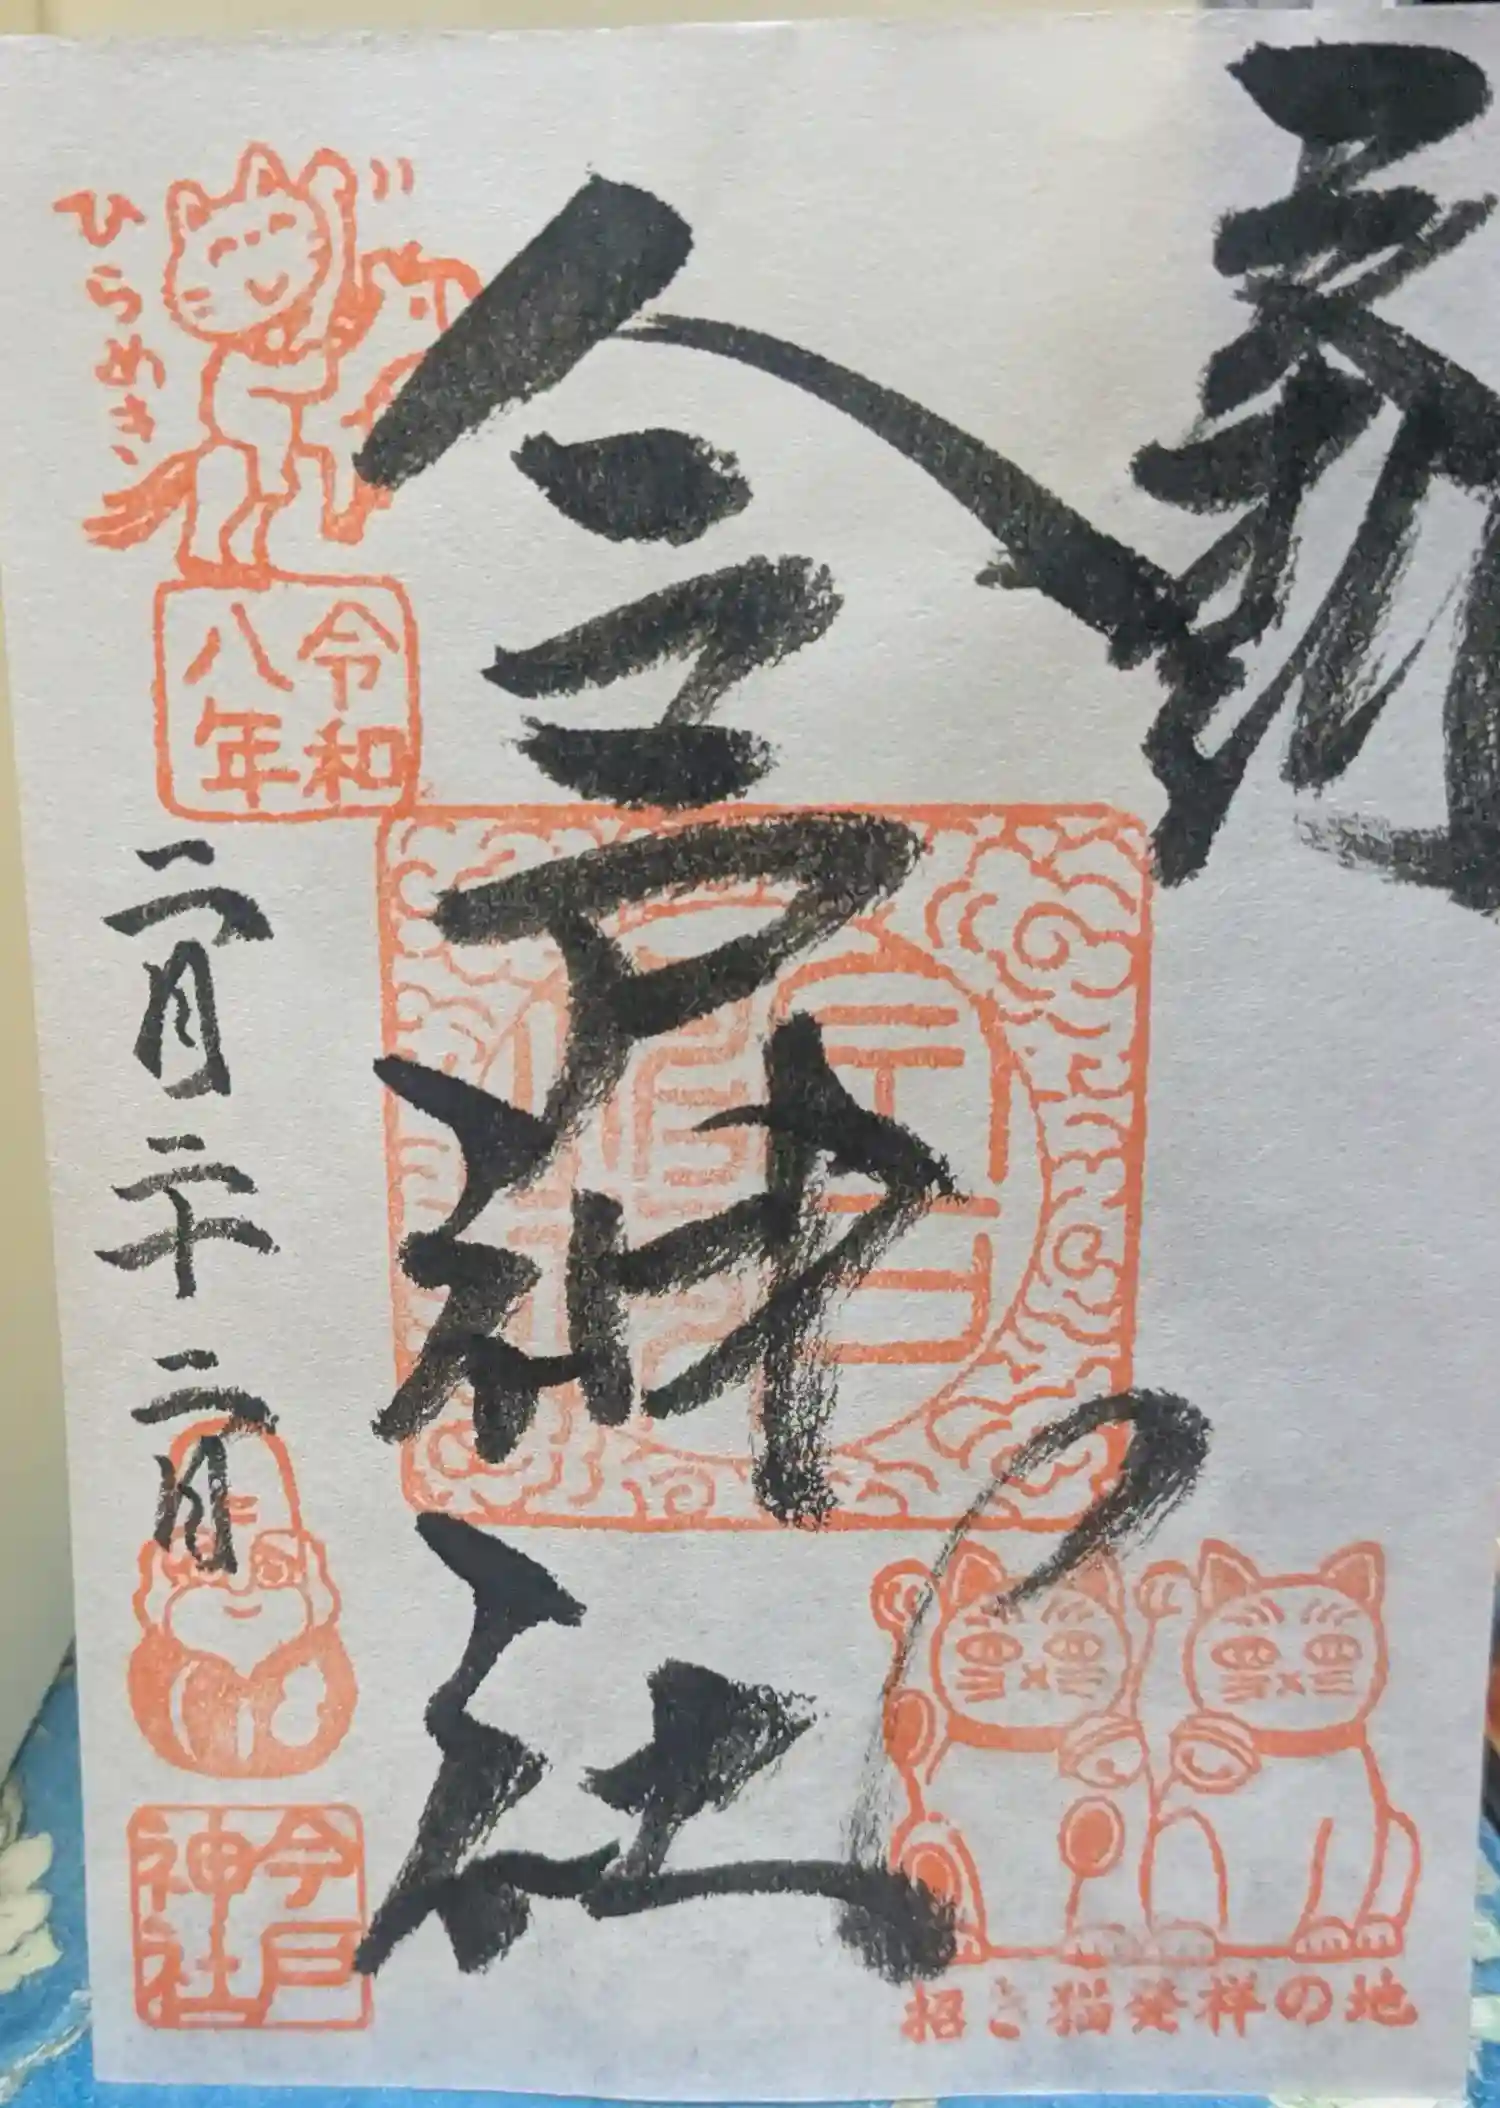 奉拝
今戸神社
ひらめき
令和
八年
二月二十二日
今戸
神社
招き猫発祥の地